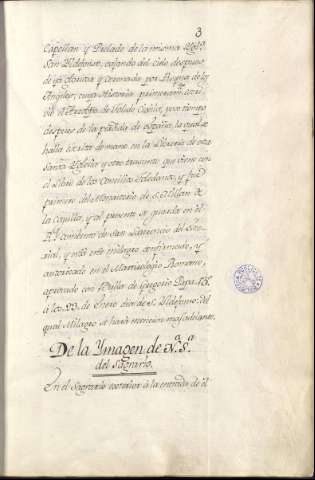 3
Capellan y Prelado de la misma Yglª.
San Yldefonso, vajando del cielo despues
de ya gloriosa y coronada por Reyna de los
Angeles, cuya Historia primeramente escri-
vió el Arzobpo de Toledo Cixila, poco tiempo
despues de la pérdida de España, la qual se
halla escrita de mano en la Libreria de esta
Santa Yglesia, y otro trasunto que viene con
el Libro de los Concilios Toledanos, y fué
primero del Monasterio de S. Millan de
la Cogolla, y al presente se guarda en el
Rl. combento de San Lorenzo del Esco-
rial, y está este milagro confirmado, y
autorizado en el Martirologio Romano,
aprovado con Bulla de Gregorio Papa 13º.
á los 23 de Enero dia de S. Yldefonso: del
qual Milagro se hará mencion mas adelante.
De la Ymagen de Nª. Sª.
del Sagrario.
En el Sagrario exterior á la entrada de él